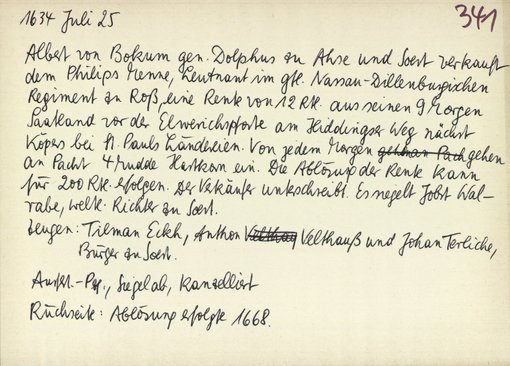 1634 Juli 25
341
Albert von Bokum gen. Dolphus zu Ahse und Soest verkauft
dem Philips Menne, Leutnant im gfl. Nassau-Dillenburgischen
Regiment zu Roß, eine Rente von 12 Rtl. aus seinen 9 Morgen
Saatland vor der Elwerichspforte am Hiddingser Weg nächst
Köpers bei St. Pauls Länderien. Von jedem Morgen gehen
an Pacht 4 Mudde Hartkorn ein. Die Ablösung der Rente kann
für 200 Rtl. erfolgen. Der Verkäufer unterschreibt. Es siegelt Jobst Wal-
rabe, weltl. Richter zu Soest.
Zeugen: Tilman Eckh, Anthon Velthauß und Johan Terliche,
Bürger zu Soest.
Ausf.-Pg., Siegel ab, kanzelliert
Rückseite: Ablösung erfolgte 1668.